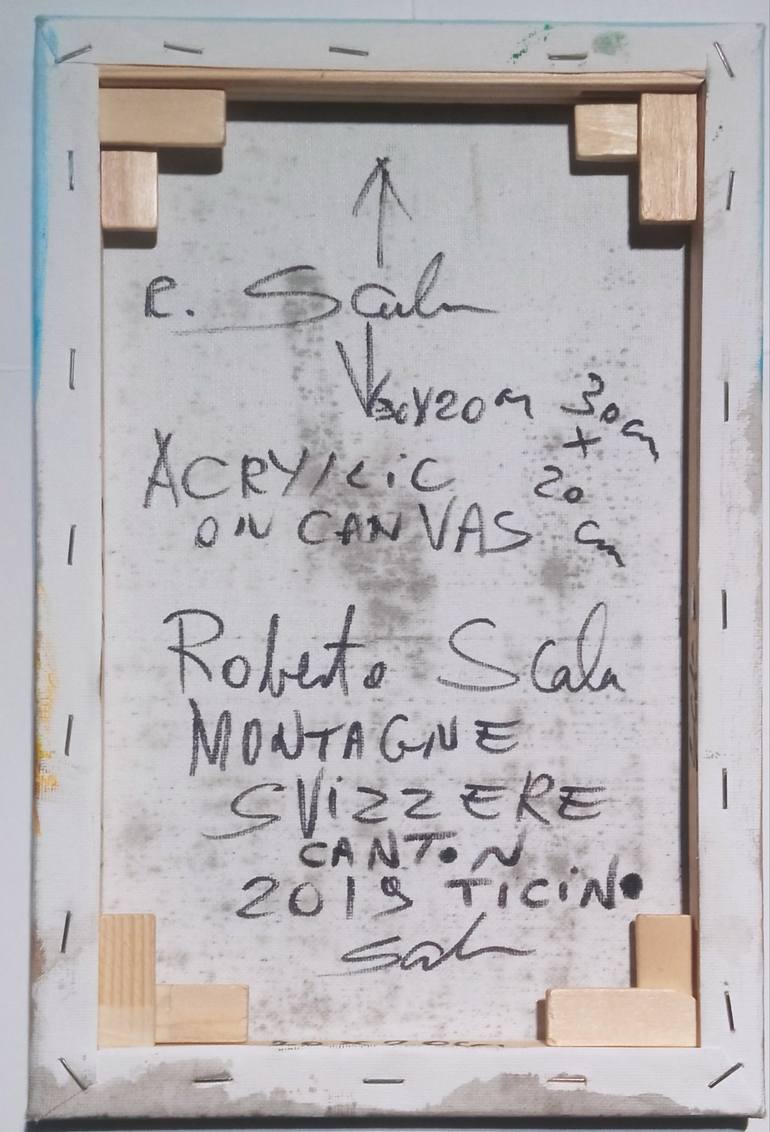 R. Scala
30x20cm 30cm
x
ACRYLIC 20
ON CANVAS cm
Roberto Scala
MONTAGNE
SVIZZERE
CANTON
2019 TICINO
Scala